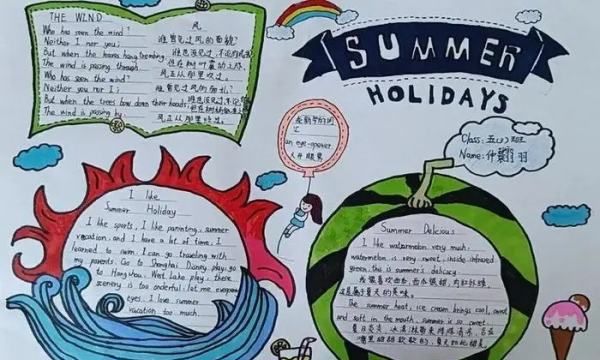 THE WIND
风
Who has seen the wind?
谁曾见过风的面貌?
Neither I nor you;
谁也没见过,不论你或我
But when the leaves hang trembling,
但在树叶震动之际,
The wind is passing through.
风正从那里吹过。
Who has seen the wind?
谁曾见过风的面孔?
Neither you nor I;
谁也没见过,不论你或我
But when the trees bow down their heads;
The wind is passing by.
风正从那里吹过。
SUMMER
HOLIDAYS
Class: 五(2)班
Name:
an eye-opener
大开眼界
I like
Summer Holiday
I like sports, I like parinting, summer
vacation, and I have a lot of time, I
learned to swim. I can go traveling with
my parents. Go to Shanghai Disney play, go
to Hangzhou West Lake play, there
scenery is too onderful, let me evepen
eyes. I love summer
vacation too much.
Summer Delicious
I like watermelon very much,
watermelon is very sweet, inside infrared
green, this is summer's delicacy
我很喜欢西瓜,西瓜很甜,内红外绿,
这是属于夏天的美味。
The summer heat, ice cream brings cool, sweet
and soft in the mouth, summer is so sweet.